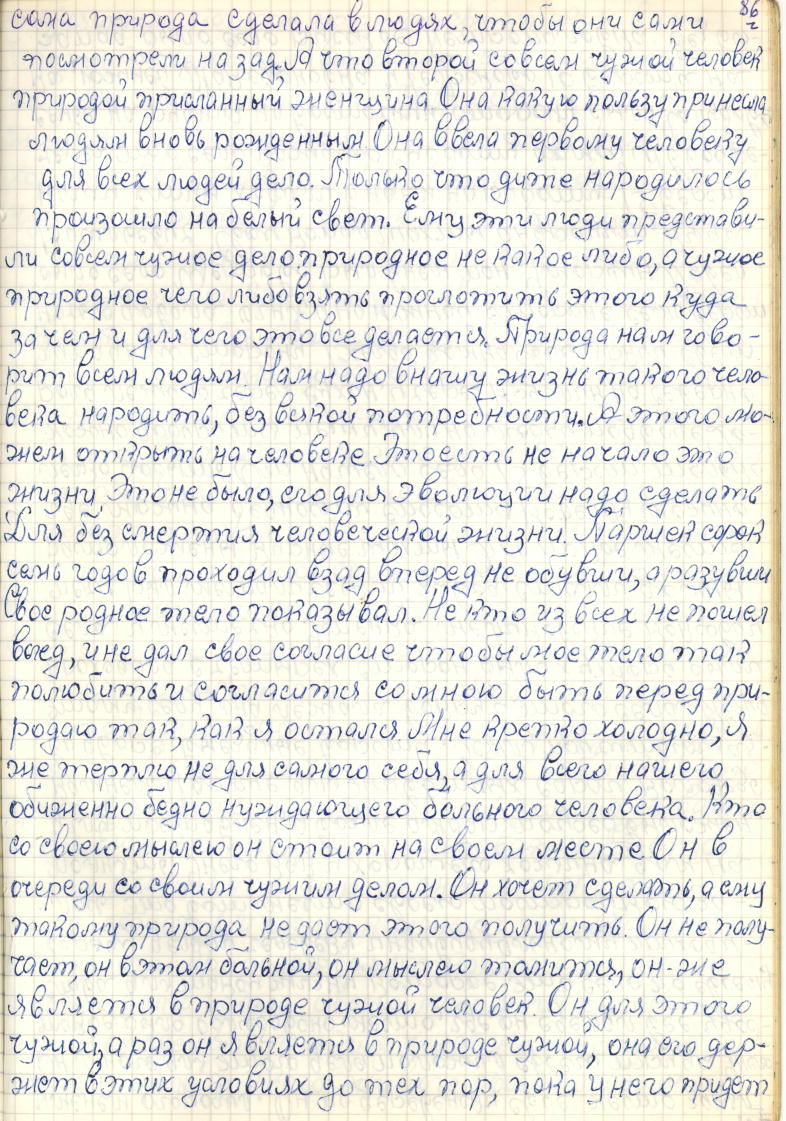 86
сама природа сделала в людях, чтобы они сами
посмотрели на зад. А что второй совсем чужой человек
природой присланный женщина Она какую пользу принесла
людям вновь рожденным Она ввела первому человеку
для всех людей дело. Только что дите народилось
произошло на белый свет. Ему эти люди представи-
ли совсем чужое дело природное не какое либо, а чужое
природное чего либо взять проглотить этого куда
зачем и для чего это все делается. Природа нам гово-
рит всем людям. Нам надо в нашу жизнь такого чело-
века народить, без всякой потребности. А этого мо-
жем открыть на человеке Это есть не начало это
жизни. Это не было, его для эволюции надо сделать
Для без смертия человеческой жизни. Паршек сорок
семь годов проходил взад вперед не обувши, а разувши
Свое родное тело показывал. Не кто из всех не пошел
в след, и не дал свое согласие чтобы мое тело так
полюбить и согласится со мною быть перед при-
родаю так, как я остался Мне крепко холодно, я
же терплю не для самого себя, а для всего нашего
обиженно бедно нуждающего больного человека. Кто
со своею мыслею он стоит на своем месте Он в
очереди со своим чужим делом. Он хочет сделать, а ему
такому природа не дает этого получить. Он не полу-
чает, он в этом больной, он мыслею томится, он-же
является в природе чужой человек. Он для этого
чужой, а раз он является в природе чужой, она его дер-
жет в этих условиях до тех пор, пока у него придет